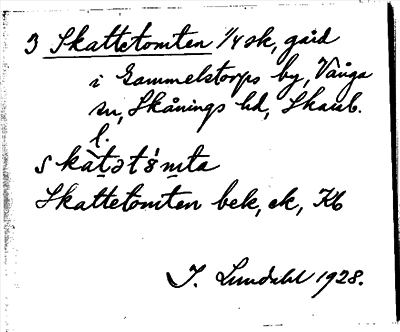 3 Skattetomten 1/4 sk, gård
i Gammelstorps by, Vånga
sn, Skånings hd, Skarab.
l.
skàt̠ət8́m̠ta
Skattetomten bek, ek, Kb
J. Lundahl 1928.